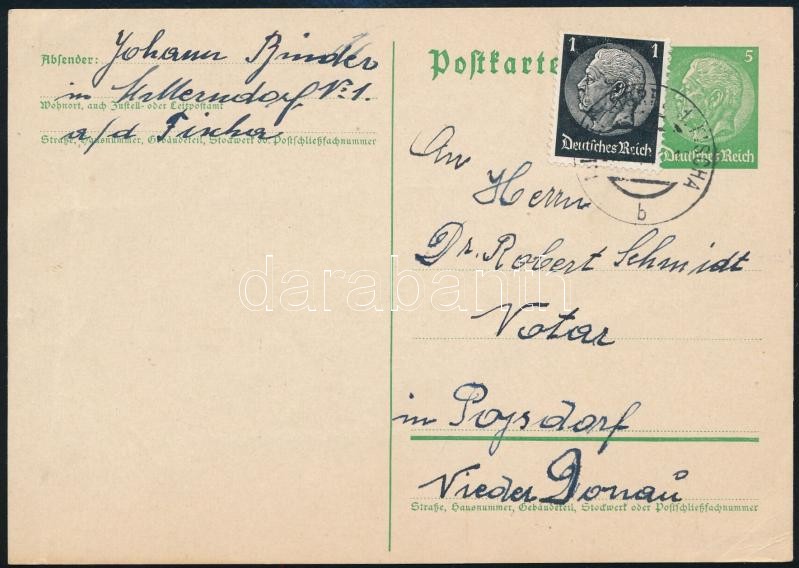 Absender: Johann Binder
in Willerndorf No 1.
Wohnort, auch Zustell- oder Leitpostamt
a/d Fischa
Straße, Hausnummer, Gebäudeteil, Stockwerk od. Postschließfachnummer
Postkarte
1 1
Deutsches Reich
5
Deutsches Reich
FISCHA
b
An Herrn
Dr. Robert Schmidt
Notar
in Poysdorf
Nieder Donau
Straße, Hausnummer, Gebäudeteil, Stockwerk oder Postschließfachnummer
darabanth